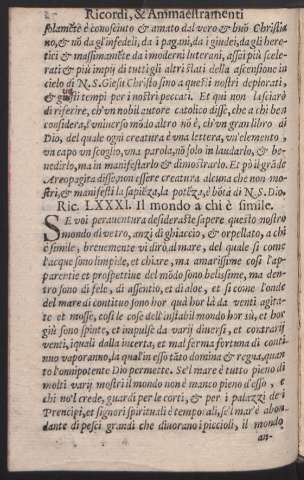 Ricordi, & Ammaestramenti
solamẽte è conosciuto & amato dal vero & buõ Christia
no, & nõ da gl'infedeli, da i pagani, da i giudei, da gli here-
tici & massimamẽte da i moderni luterani, assai più scele-
rati & più impij di tutti gli altri stati della ascensione in
cielo di N. S. Giesu Christo sino a questi nostri deplorati,
& giusti tempi per i nostri peccati. Et qui non lasciarò
di riferire, ch'vn nobil autore catolico disse, che a chi ben
considera, l'vniuerso mõdo altro nõ è, ch'vn gran libro di
Dio, del quale ogni creatura è vna lettera, vn'elemento,
vn capo vn scoglio, vna parola, nõ solo in laudarlo, & be-
nedirlo, ma in manifestarlo & dimostrarlo. Et pò il grã de
Areopagita disse, non essere creatura alcuna che non mo-
stri, & manifesti la sapiẽza, la potẽza, e bõtà di N. S. Dio.
Ric. LXXXI. Il mondo a chi è simile.
SE voi perauentura desideraste sapere questo nostro
mondo di vetro, anzi di ghiaccio, & orpellato, a chi
è simile, breuemente vi dirò, al mare, del quale si come
l'acque sono limpide, et chiare, ma amarissime così l'ap-
parentie et prospettiue del mõdo sono belissime, ma den-
tro sono di fele, di assentio, et di aloe, et si come l'onde
del mare di contituo sono hor quà hor là da venti agita-
te et mosse, così le cose dell'instabil mondo hor sù, et hor
giù sono spinte, et impulse da varij diuersi, et contrarij
venti, i quali dalla incerta, et mal ferma fortuna di conti-
nuo vaporanno, la qual'in esso tãto domina & regna, quan-
to l'onnipotente Dio permette. Se'l mare è tutto pieno di
molti varij mostri il mondo non è manco pieno d'esso, e
chi no'l crede, guardi per le corti, & per i palazzi de i
Prencipi, et signori spirituali è temporali, se'l mar'è abon-
dante di pesci grandi che diuorano i piccioli, il mondo
an-